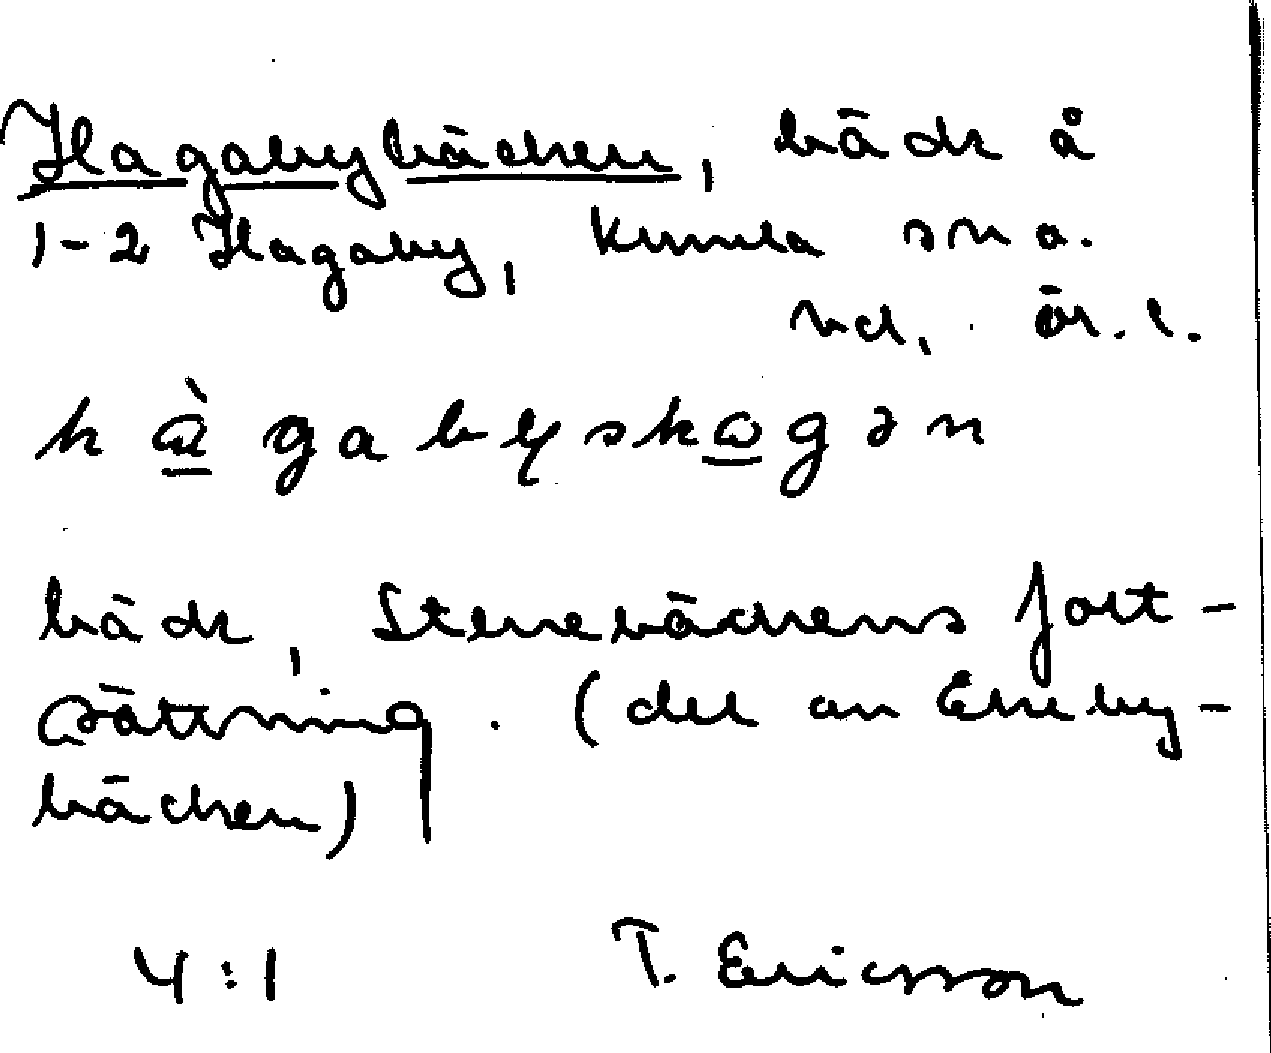 Hagabybäcken, bäck å
1-2 Hagaby, Kumla sn o.
hd, ör. l.
bäck, Stenebäckens fort-
sättning. (del av Ekeby-
bäcken)
4:1 T. Ericsson